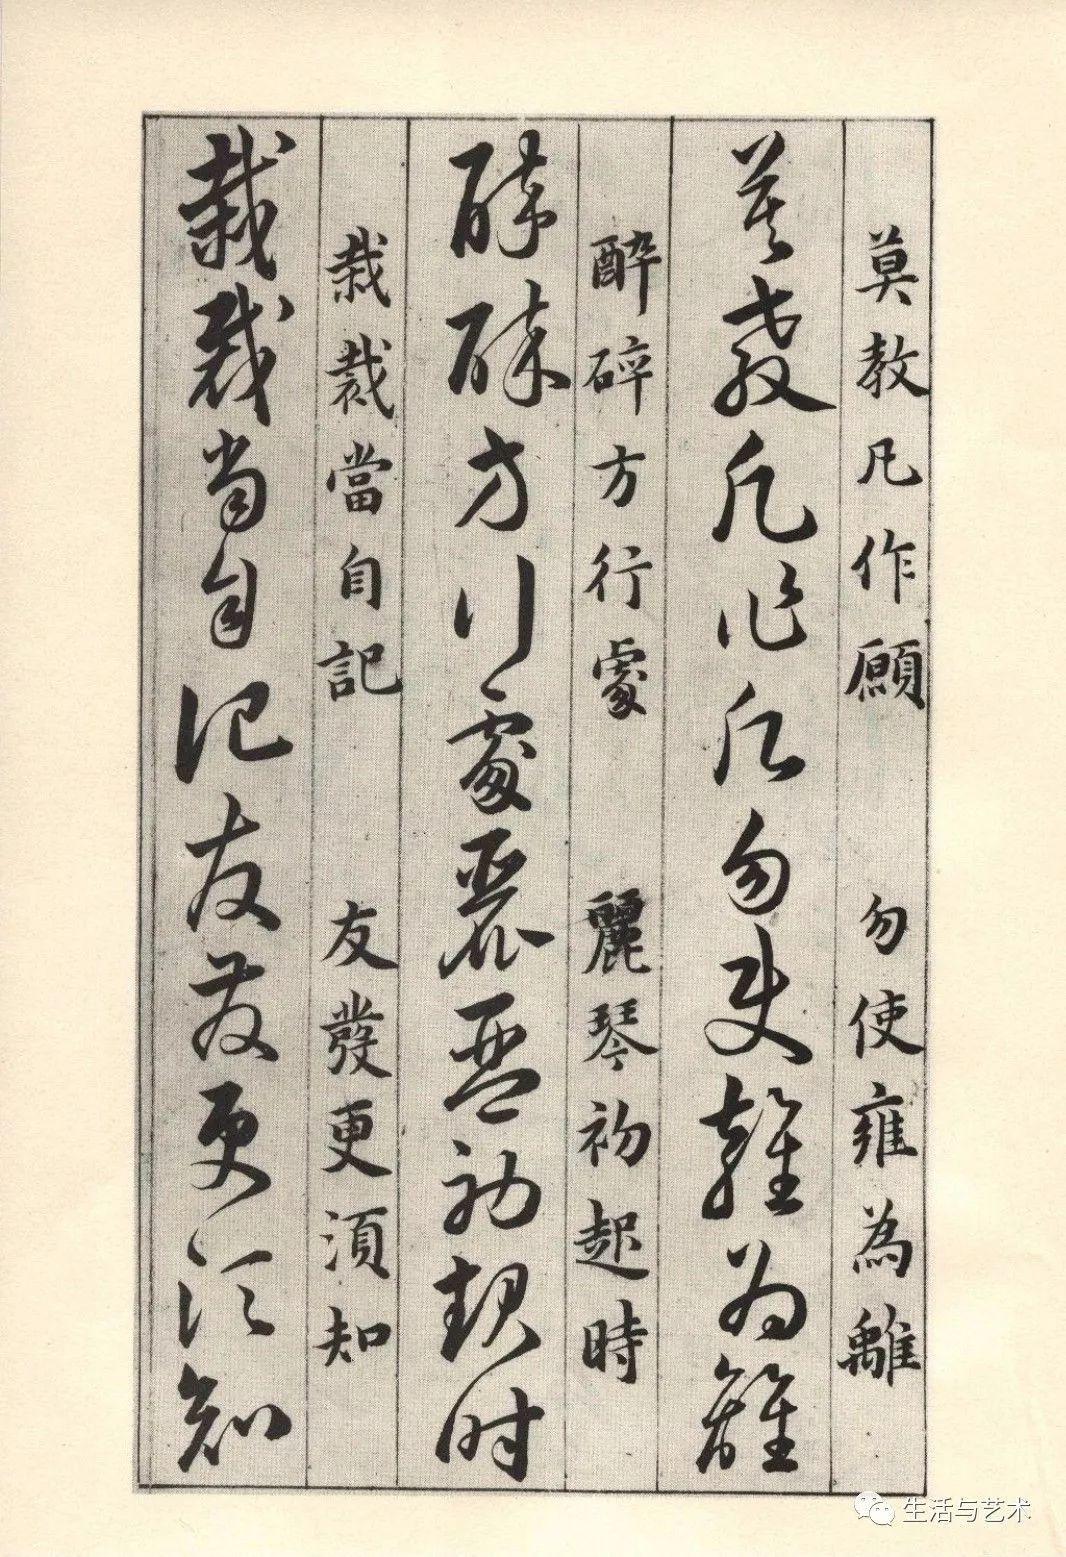 莫教凡作願　勿使雍為離
莫教凡作願勿使雍為離
醉碎方行處　麗琴初起時
醉碎方行處麗琴初起時
栽裁當自記　友發更須知
栽裁當自記友發更須知
生活与艺术